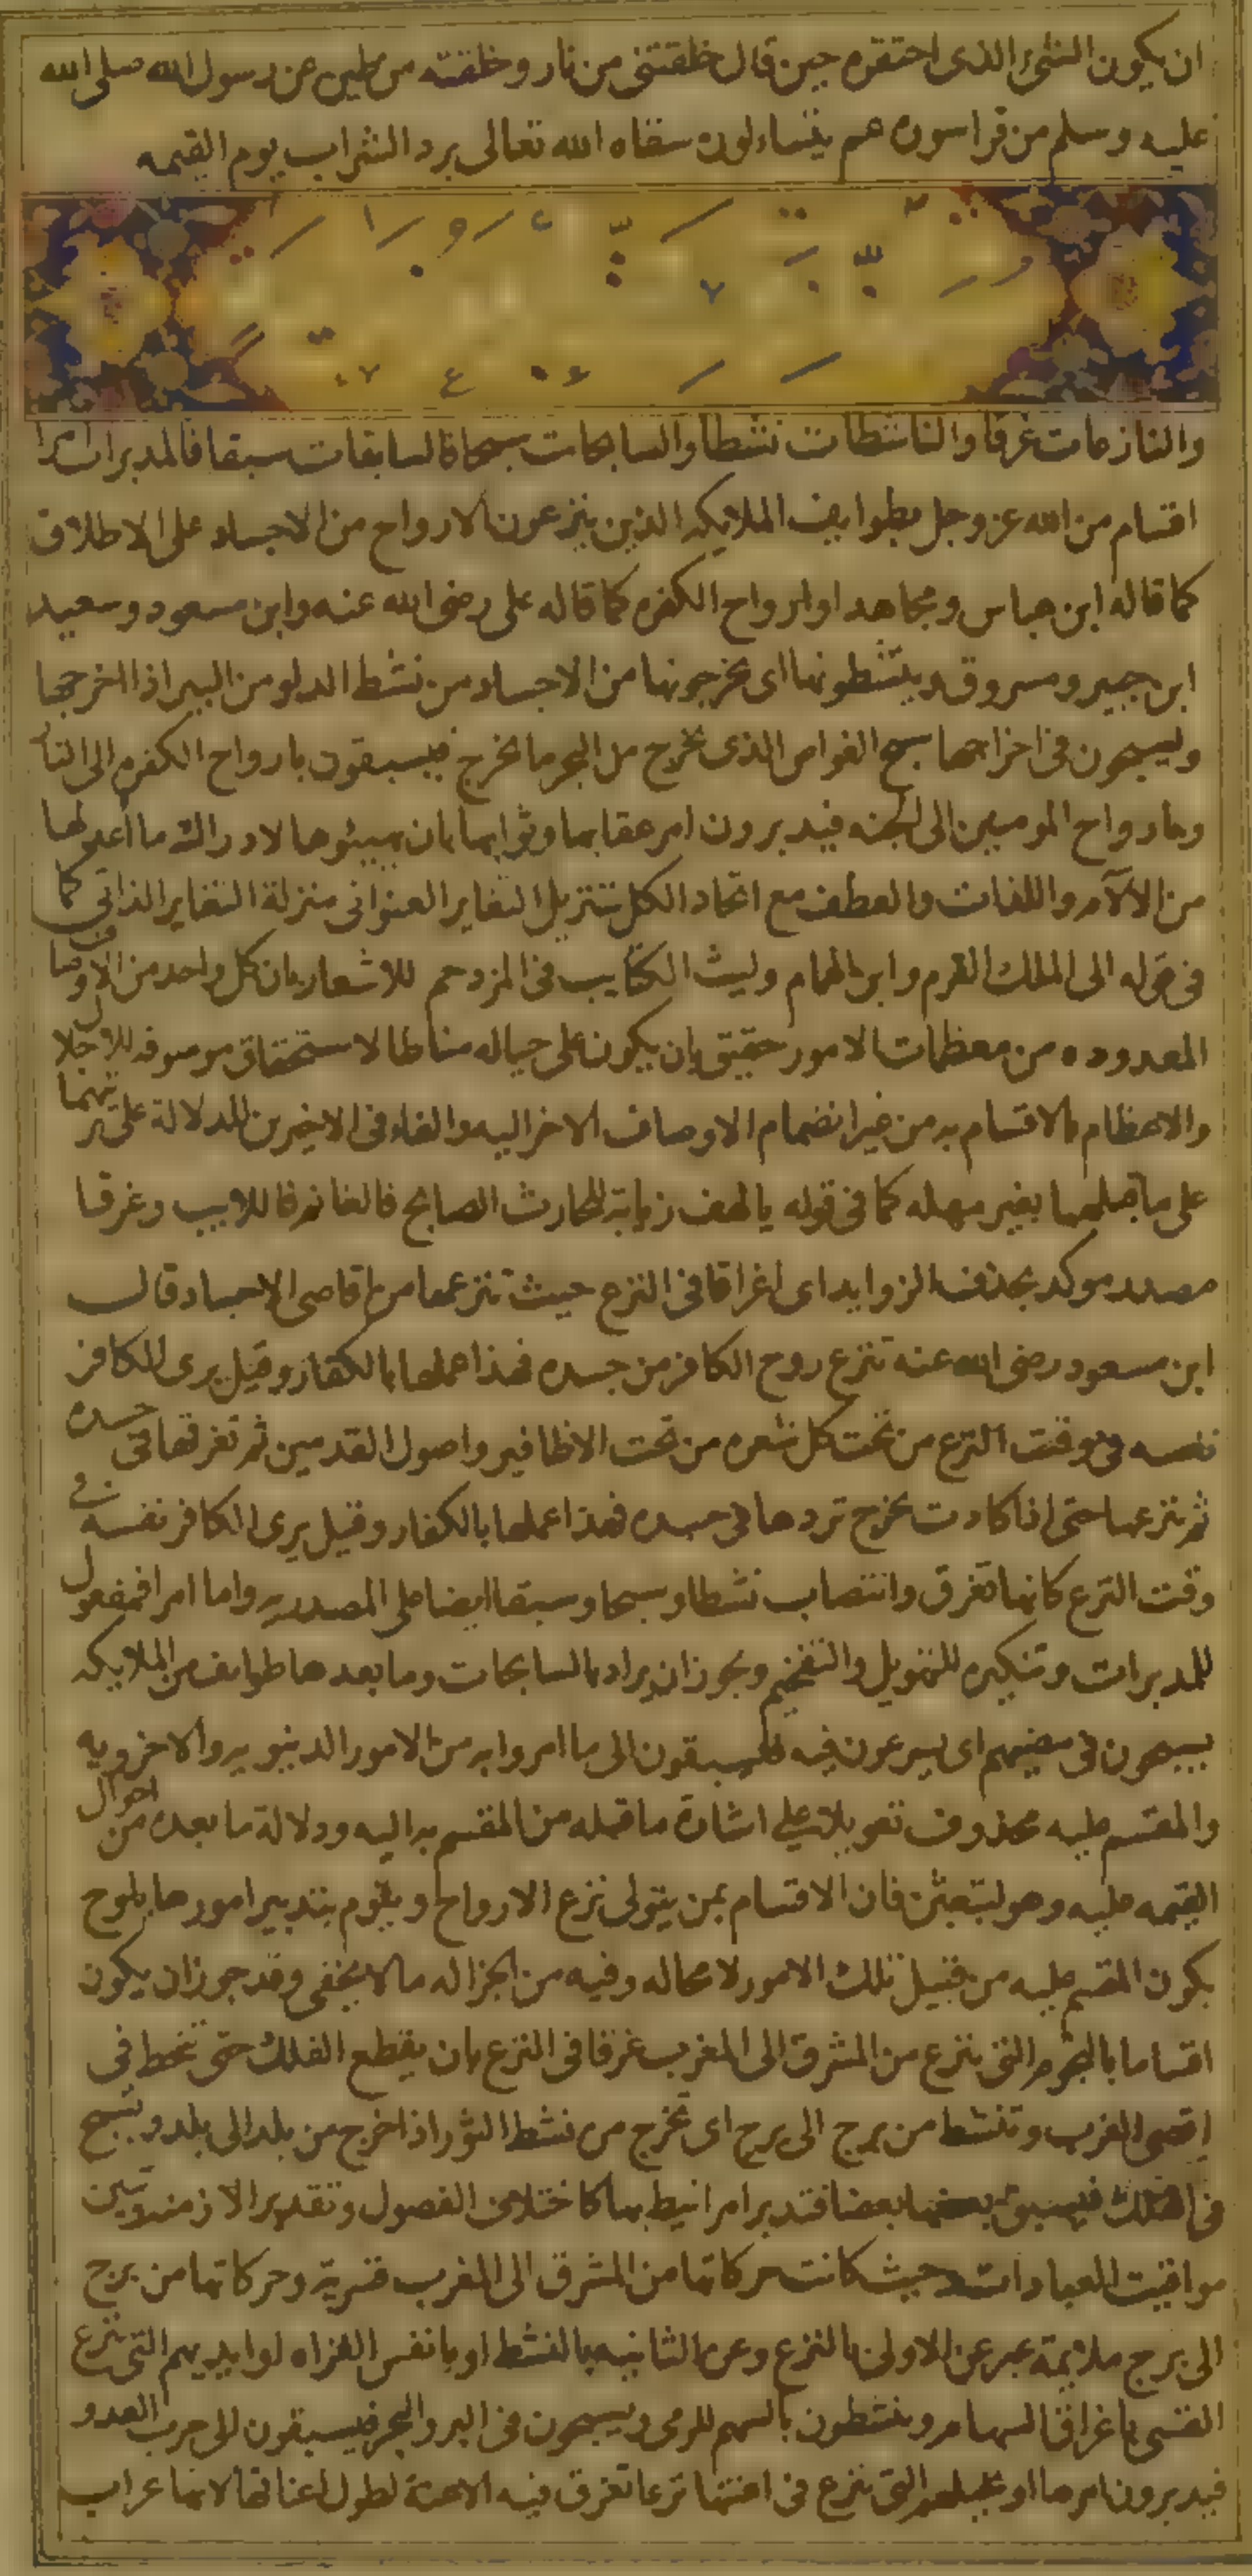 ان يكون الشئ الذى احتقره حين قال خلقتنى من نار وخلقته من طين عن رسول الله صلى الله
عليه وسلم من قرا سورة عم يتساءلون سقاه الله تعالى برد الشراب يوم القيمه
والنازعات غرقا والناشطات نشطا والسابحات سبحا فالسابقات سبقا فالمدبرات امرا
اقسام من الله عز وجل بطوايف الملايكه الذين ينزعون الارواح من الاجساد على الاطلاق
كما قاله ابن عباس ومجاهد او ارواح الكفره كما قاله على رضى الله عنه وابن مسعود وسعيد
ابن جبير ومسروق وينشطونها اى يخرجونها من الاجساد من نشط الدلو من البير اذا اخرجها
ويسبحون فى اخراجها سبح الغواص الذى يخرج من البحر ما يخرج فيسبقون بارواح الكفره الى النار
وبارواح المومنين الى الجنه فيدبرون امر عقابها وثوابها بان يهيئوها لادراك ما اعد لها
من الآلام واللذات والعطف مع اتحاد الكل بتنزيل التغاير العنوانى منزلة التغاير الذاتى كما
فى قوله الى الملك القرم وابن الهمام وليث الكتايب فى المزدحم للاشعار بان كل واحد من الاوصاف
المعدوده من معظمات الامور حقيق بان يكون على حياله مناطا لاستحقاق موصوفه للاجلال
والاعظام بالاقسام به من غير انضمام الاوصاف الاخر اليه والفاء فى الاخيرين للدلالة على ترتبهما
على ما قبلهما بغير مهله كما فى قوله يا لهف زيابة للحارث الصابح فالغانم فالايب وغرقا
مصدر موكد بحذف الزوايد اى اغراقا فى النزع حيث تنزعها من اقاصى الاجساد قال
ابن مسعود رضى الله عنه تنزع روح الكافر من جسده فهذا عملها بالكفار وقيل يرى الكافر
نفسه فى وقت النزع من تحت كل شعره من تحت الاظافير واصول القدمين ثم تغرقها فى جسده
ثم تنزعها حتى اذا كادت تخرج تردها فى جسده فهذا عملها بالكفار وقيل يرى الكافر نفسه فى
وقت النزع كانها تغرق وانتصاب نشطا وسبحا وسبقا ايضا على المصدريه واما امرا فمفعول
للمدبرات وتنكيره للتهويل والتفخيم ويجوز ان يراد بالسابحات وما بعدها طوايف من الملايكه
يسبحون فى مضيهم اى يسرعون فيه فيسبقون الى ما امروا به من الامور الدنيويه والاخرويه
والمقسم عليه محذوف تعويلا على اشارة ما قبله من المقسم به اليه ودلالة ما بعده من احوال
القيمه عليه وهو لتبعثن فان الاقسام بمن يتولى نزع الارواح ويقوم بتدبير امورها يلوح
بكون المقسم عليه من قبيل تلك الامور لا محاله وفيه من الجزاله ما لا يخفى وقد جوز ان يكون
اقساما بالنجوم التى ينزع من المشرق الى المغرب غرقا فى النزع بان يقطع الفلك حتى تنحط فى
اقصى الغرب وتنشط من برج الى برج اى تخرج من نشط الثور اذا خرج من بلد الى بلد وتسبح
فى الفلك فيسبق بعضها بعضا فتدبر امرا نيط بها كاختلاف الفصول وتقدير الازمنه وتبين
مواقيت العبادات وحيث كانت حركاتها من المشرق الى المغرب قسرية وحركاتها من برج
الى برج ملايمة عبر عن الاولى بالنزع وعن الثانيه بالنشط او بانفس الغزاه او ايديهم التى تنزع
القسى باغراق السهام وينشطون بالسهم للرمى ويسبحون فى البر والبحر فيسبقون الى حرب العدو
فيدبرون امرها او بخيلهم التى تنزع فى اعنتها نزعا تغرق فيه الاعنة لطول اعناقها لانها عراب